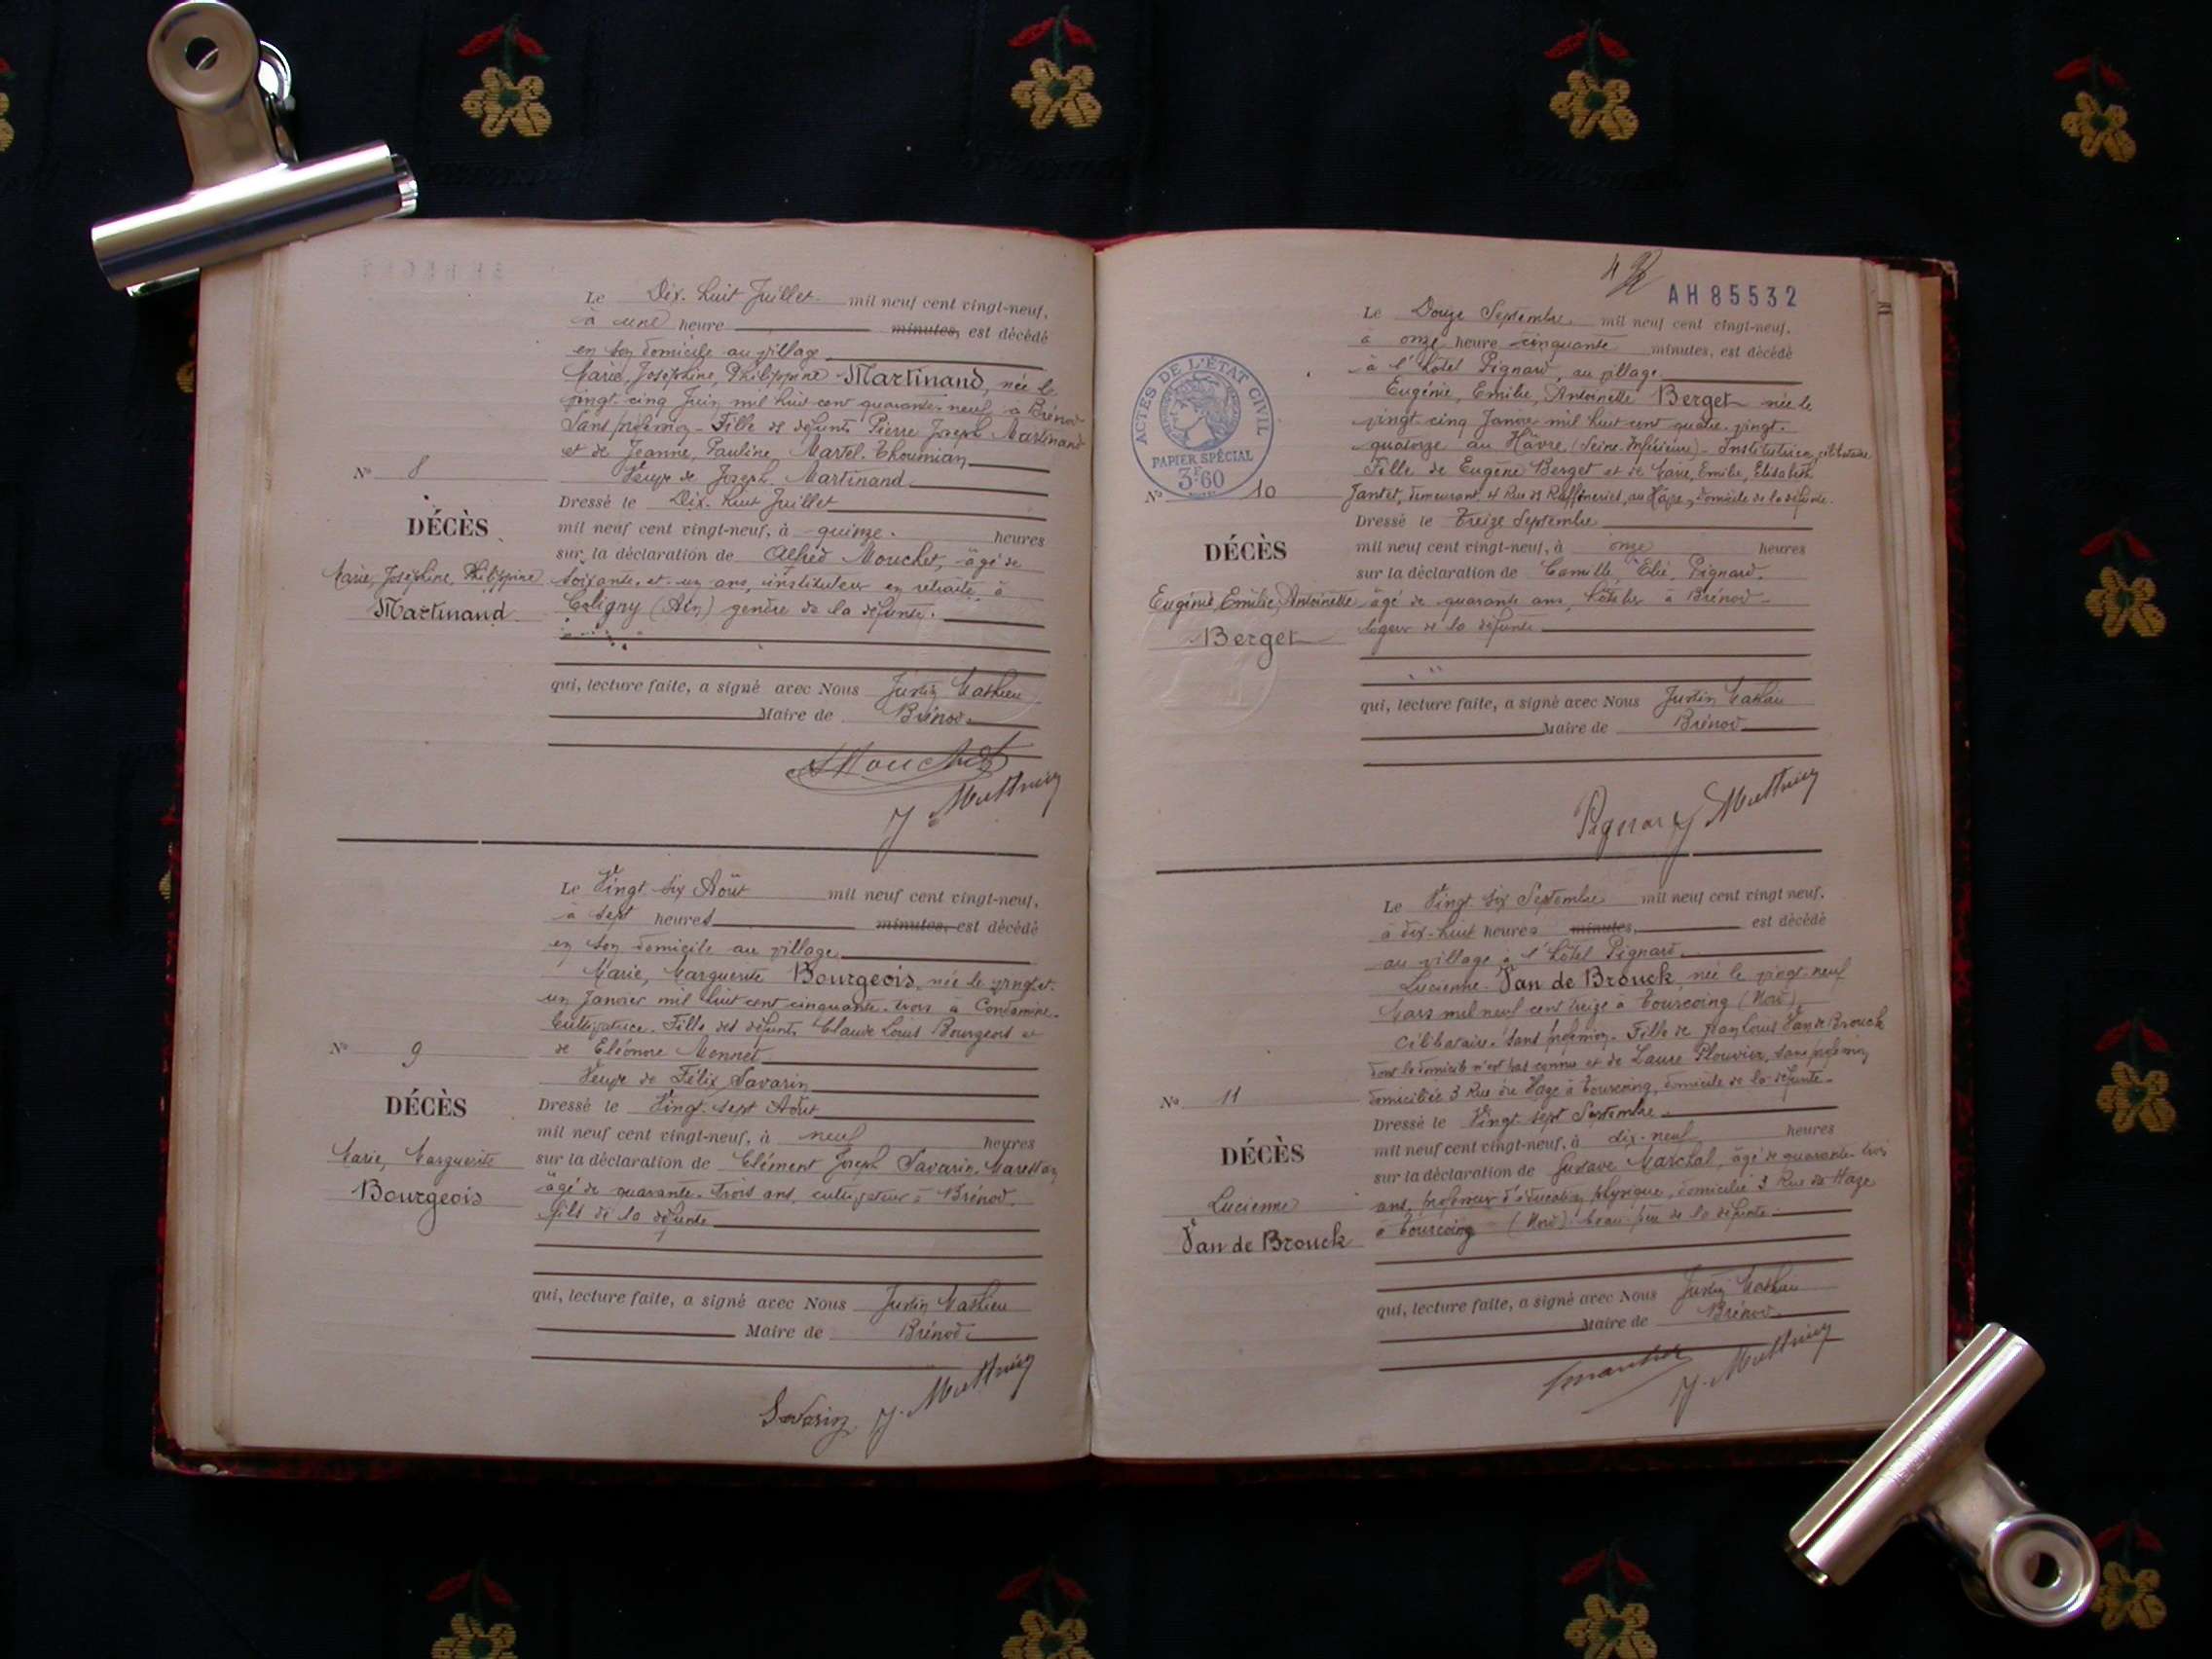 Le Dix-huit Juillet mil neuf cent vingt-neuf,
à une heure minutes, est décédé
en son domicile au village
Marie, Joséphine, Philippine Martinand, née le
vingt-cinq Juin mil huit cent quarante-neuf à Brénod
Sans profession - Fille de défunts Pierre Joseph Martinand
et de Jeanne, Pauline Martel-Thoumian
Veuve de Joseph Martinand
Dressé le Dix-huit Juillet
mil neuf cent vingt-neuf, à quinze heures
sur la déclaration de Alfred Mouchet, âgé de
soixante-et-un ans, instituteur en retraite à
Coligny (Ain) gendre de la défunte.
qui, lecture faite, a signé avec Nous Justin Mathieu
Maire de Brénod
Nº 8
DÉCÈS
Marie, Joséphine, Philippine
Martinand
AMouchet
J. Mathieu
Le Vingt-six Août mil neuf cent vingt-neuf,
à sept heures minutes, est décédé
en son domicile au village
Marie, Marguerite Bourgeois, née le vingt et
un Janvier mil huit cent cinquante-trois à Condamine.
Cultivatrice. Fille des défunts Claude Louis Bourgeois et
de Eléonore Monnet
Veuve de Félix Savarin
Dressé le Vingt-sept Août
mil neuf cent vingt-neuf, à neuf heures
sur la déclaration de Clément Joseph Savarin-Marestan
âgé de quarante-trois ans, cultivateur à Brénod
fils de la défunte
qui, lecture faite, a signé avec Nous Justin Mathieu
Maire de Brénod
Nº 9
DÉCÈS
Marie, Marguerite
Bourgeois
Savarin J. Mathieu
42
AH85532
ACTES DE L'ÉTAT CIVIL
PAPIER SPÉCIAL
3F60
Le Douze Septembre mil neuf cent vingt-neuf,
à onze heure cinquante minutes, est décédé
à l'hôtel Pignard, au village
Eugénie, Emilie, Antoinette Berget née le
vingt-cinq Janvier mil huit cent quatre-vingt-
quatorze au Hâvre (Seine-Inférieure) - Institutrice, célibataire
Fille de Eugène Berget et de Marie, Emilie, Elisabeth
Jantet, demeurant 4 Rue des Raffineries, au Hâvre, domicile de la défunte.
Dressé le Treize Septembre
mil neuf cent vingt-neuf, à onze heures
sur la déclaration de Camille, Elié, Pignard.
âgé de quarante ans, hôtelier à Brénod -
logeur de la défunte
qui, lecture faite, a signé avec Nous Justin Mathieu
Maire de Brénod
Nº 10
DÉCÈS
Eugénie, Emilie, Antoinette
Berget
Pignard J Mathieu
Le Vingt-six Septembre mil neuf cent vingt neuf,
à dix-huit heures minutes, est décédé
au village à l'hôtel Pignard
Lucienne Van de Brouck, née le vingt-neuf
Mars mil neuf cent treize à Tourcoing (Nord)
Célibataire. Sans profession. Fille de Jean Louis Van de Brouck
dont le domicile n'est pas connu et de Laure Plouvier, sans profession
domiciliée 3 Rue du Haze à Tourcoing, domicile de la défunte.
Dressé le Vingt-sept Septembre
mil neuf cent vingt-neuf, à dix-neuf heures
sur la déclaration de Gustave Marchal, âgé de quarante-trois
ans, professeur d'éducation physique, domicilié 3 Rue du Haze
à Tourcoing (Nord) beau-père de la défunte
qui, lecture faite, a signé avec Nous Justin Mathieu
Maire de Brénod
Nº 11
DÉCÈS
Lucienne
Van de Brouck
J. Mathieu